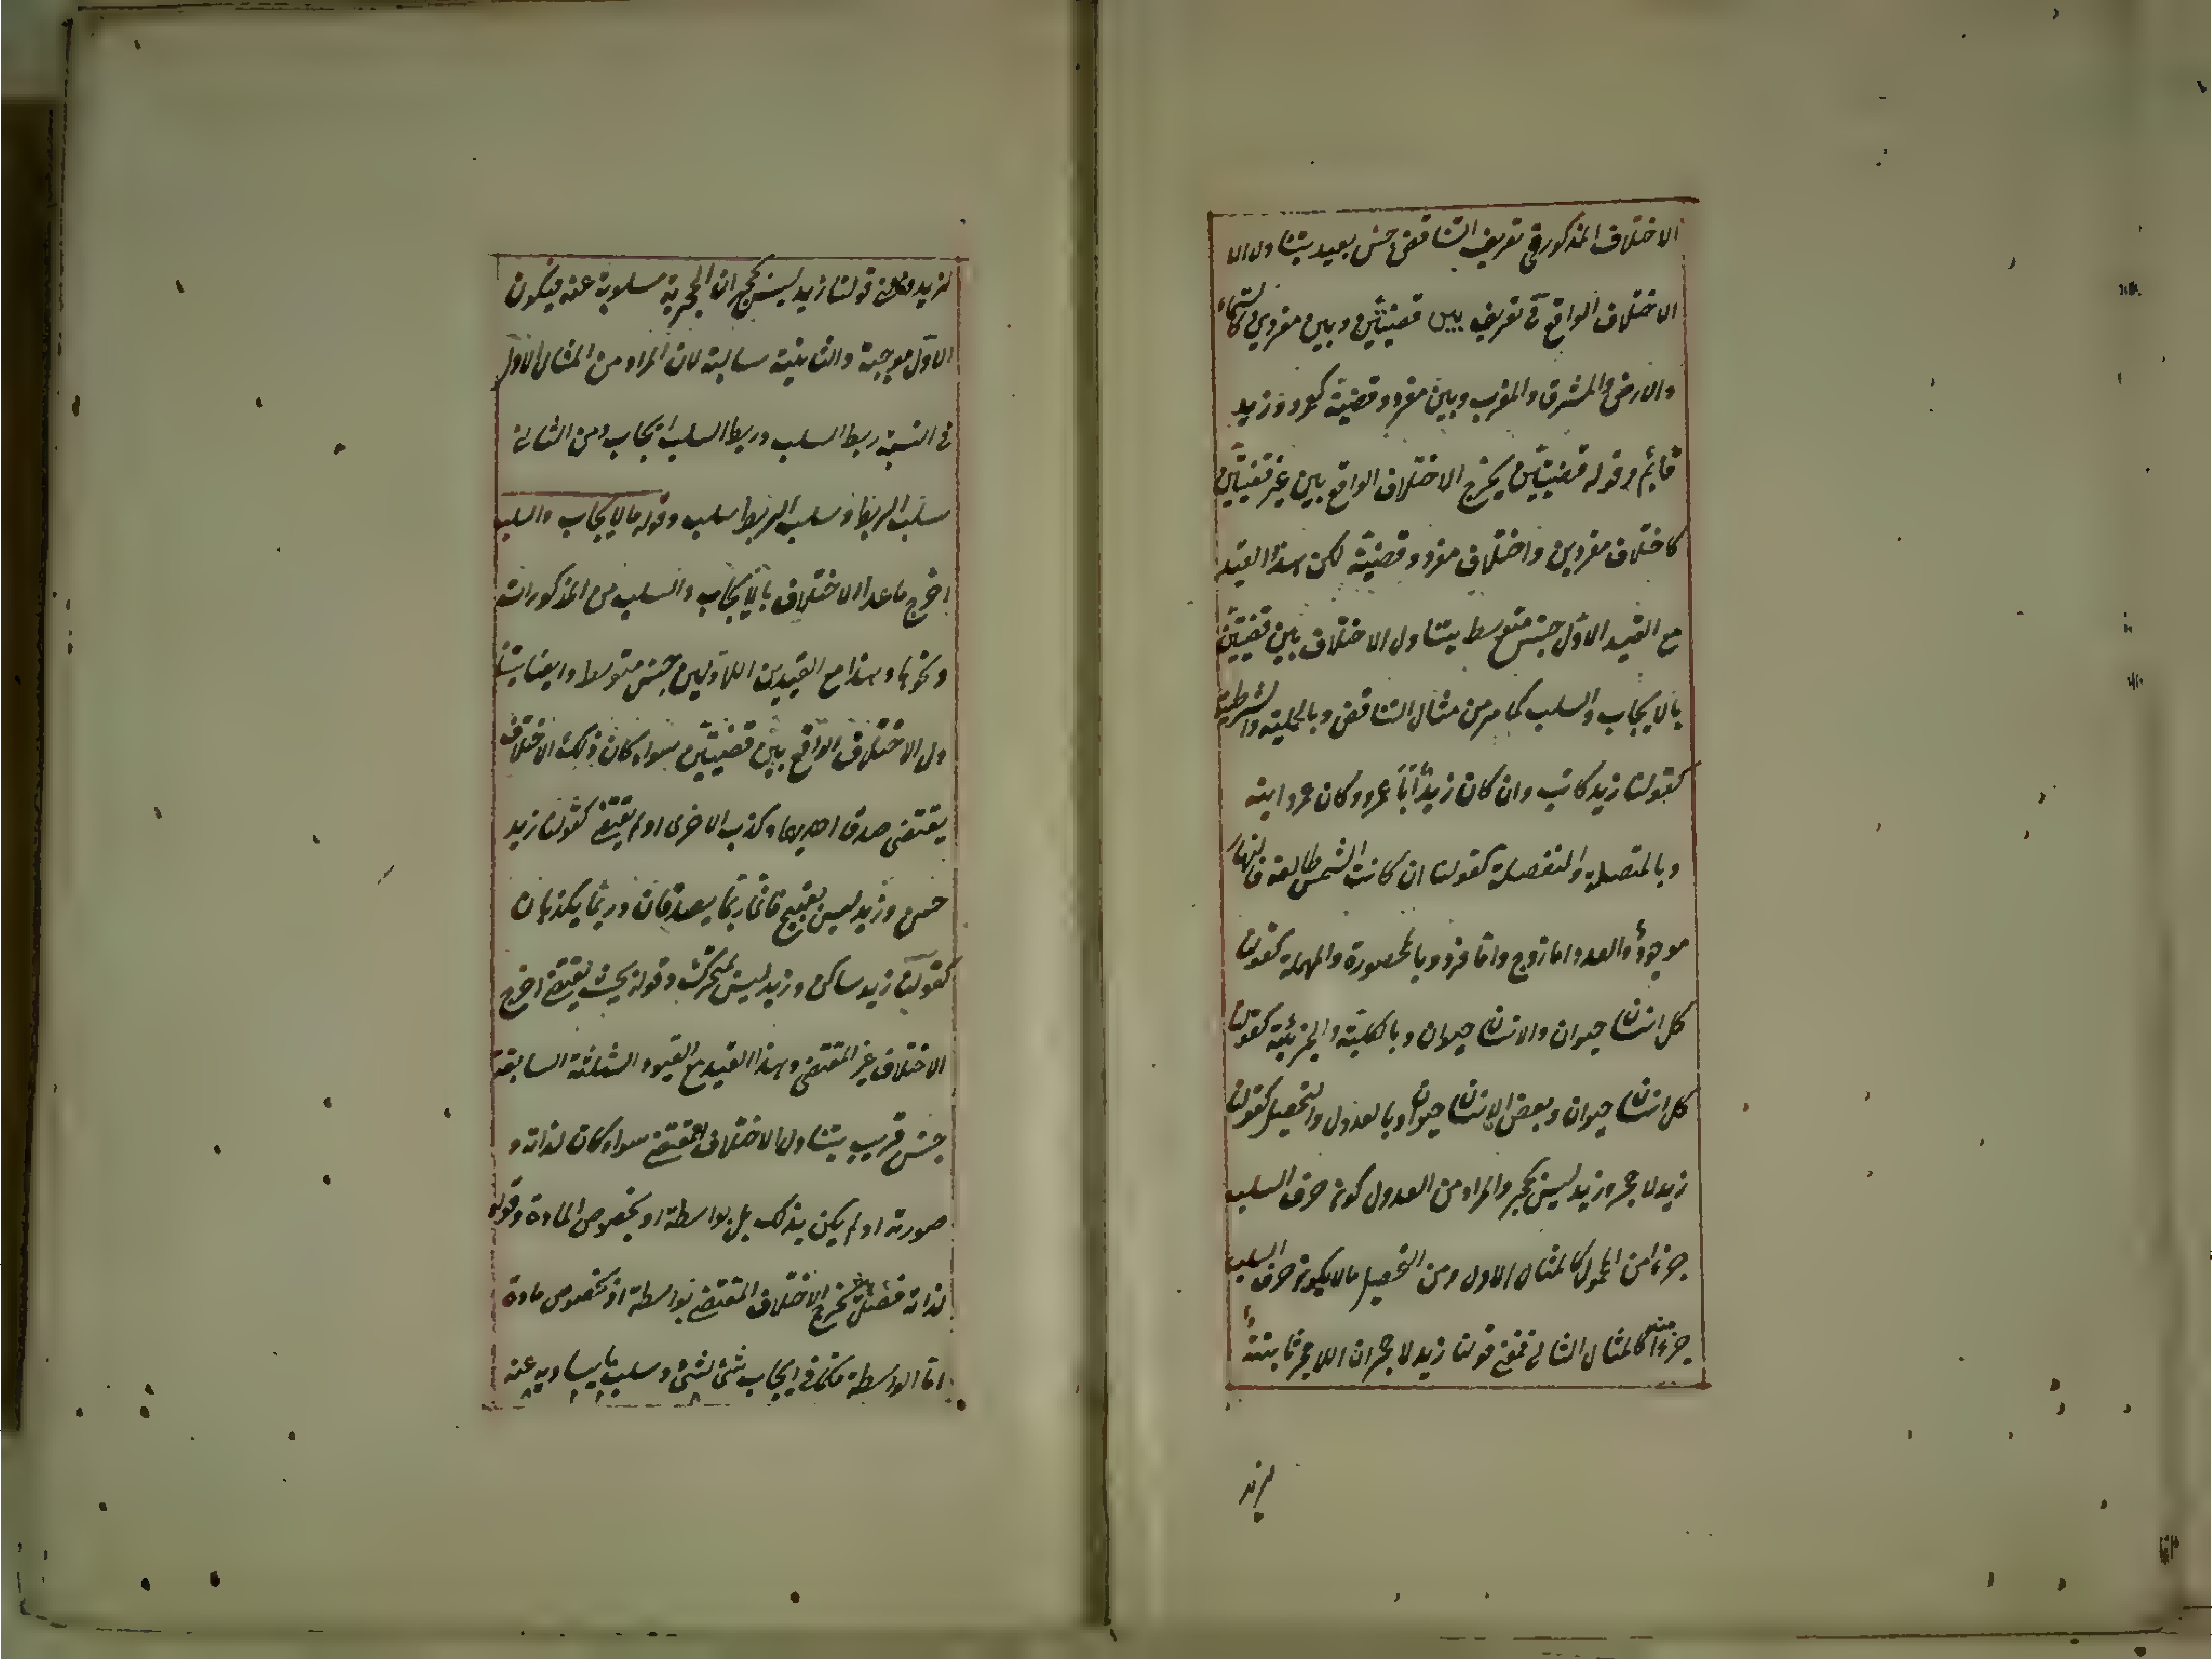 الاختلاف المذكور في تعريف التناقض جنس بعيد يتناول الا
الاختلاف الواقع في تعريف بين قضيتين وبين مفردين كالسماء
والارض والمشرق والمغرب وبين مفرد وقضية كعمرو وزيد
قائم وقوله قضيتين يخرج الاختلاف الواقع بين غير قضيتين
كاختلاف مفردين واختلاف مفرد وقضية لكن هذا القيد
مع القيد الاول جنس متوسط يتناول الاختلاف بين قضيتين
بالايجاب والسلب كما مر من مثال التناقض وبالحملية والشرطية
كقولنا زيد كاتب وان كان زيد أبا عمرو وكان عمرو ابنه
وبالمتصلة والمنفصلة كقولنا ان كانت الشمس طالعة فالنهار
موجود والعدد اما زوج واما فرد وبالمحصورة والمهملة كقولنا
كل انسان حيوان والانسان حيوان وبالكلية والجزئية كقولنا
كل انسان حيوان وبعض الانسان حيوان وبالعدول والتحصيل كقولنا
زيد لا حجر وزيد ليس بحجر والمراد من العدول كونه حرف السلب
جزءا من المحمول كالمثال الاول ومن التحصيل ما لا يكون حرف السلب
جزءا منه كالمثال الثاني فمعنى قولنا زيد لا حجر ان اللاحجر ثابتة
لزيد
لزيد ومعنى قولنا زيد ليس بحجر ان الحجرية مسلوبة عنه فيكون
الاول موجبة والثانية سالبة لان المراد من المثال الاول
في النسبة ربط السلب وربط السلب ايجاب ومن الثاني
سلب الربط وسلب الربط سلب وقوله بالايجاب والسلب
اخرج ما عدا الاختلاف بالايجاب والسلب من المذكورات
ونحوها وهذا مع القيدين الاولين جنس متوسط وايضا يتنا
ول الاختلاف الواقع بين قضيتين سواء كان ذلك الاختلاف
يقتضي صدق احديهما وكذب الاخرى او لم يقتض كقولنا زيد
حسن وزيد ليس بقبيح فانهما ربما يصدقان وربما يكذبان
كقولنا زيد ساكن وزيد ليس بمتحرك وقوله بحيث يقتضي اخرج
الاختلاف غير المقتضي وهذا القيد مع القيود الثلثة السابقة
جنس قريب يتناول الاختلاف المقتضي سواء كان لذاته و
صورته او لم يكن بذلك بل بواسطة او بخصوص المادة وقوله
لذاته فصل يخرج الاختلاف المقتضي بواسطة او بخصوص مادة
اما الواسطة فكما في ايجاب شئ لشئ وسلب ما يساويه عنه